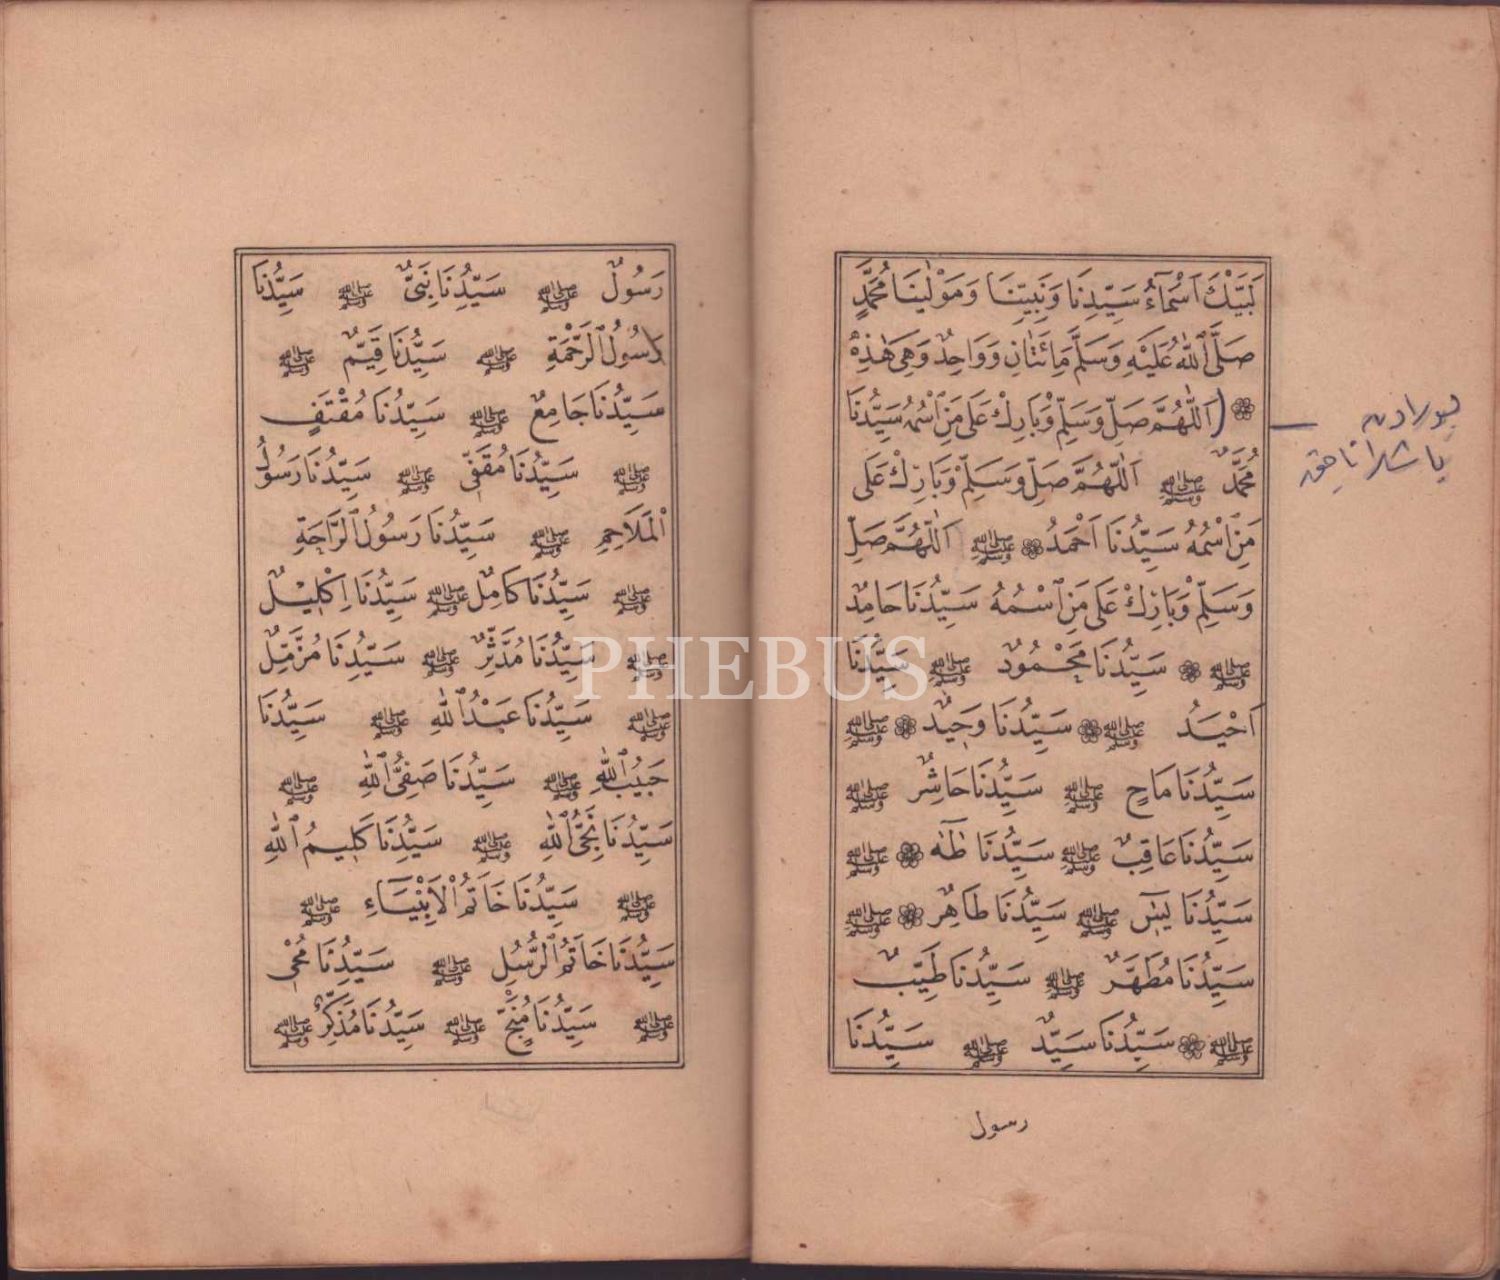 لَبَّيْكَ اَسْمَآءُ سَيِّدِنَا وَنَبِيِّنَا وَمَوْلٰينَا مُحَمَّدٍ
صَلَّى ٱللّٰهُ عَلَيْهِ وَسَلَّمَ مِائَتَانِ وَوَاحِدٌ وَهِىَ هٰذِهِ
(اَللّٰهُمَّ صَلِّ وَسَلِّمْ وَبَارِكْ عَلَى مَنِ ٱسْمُهُ سَيِّدُنَا
مُحَمَّدٌ ﷺ اَللّٰهُمَّ صَلِّ وَسَلِّمْ وَبَارِكْ عَلَى
مَنِ ٱسْمُهُ سَيِّدُنَا اَحْمَدُ ﷺ اَللّٰهُمَّ صَلِّ
وَسَلِّمْ وَبَارِكْ عَلَى مَنِ ٱسْمُهُ سَيِّدُنَا حَامِدٌ
ﷺ سَيِّدُنَا مَحْمُودٌ ﷺ سَيِّدُنَا
اَحْيَدُ ﷺ سَيِّدُنَا وَحِيدٌ ﷺ
سَيِّدُنَا مَاحٍ ﷺ سَيِّدُنَا حَاشِرٌ ﷺ
سَيِّدُنَا عَاقِبٌ ﷺ سَيِّدُنَا طٰهٰ ﷺ
سَيِّدُنَا يٰسٓ ﷺ سَيِّدُنَا طَاهِرٌ ﷺ
سَيِّدُنَا مُطَهَّرٌ ﷺ سَيِّدُنَا طَيِّبٌ
ﷺ سَيِّدُنَا سَيِّدٌ ﷺ سَيِّدُنَا
رسول
بورادن
رَسُولٌ ﷺ سَيِّدُنَا نَبِىٌّ ﷺ سَيِّدُنَا
رَسُولُ ٱلرَّحْمَةِ ﷺ سَيِّدُنَا قَيِّمٌ ﷺ
سَيِّدُنَا جَامِعٌ ﷺ سَيِّدُنَا مُقْتَفٍ
ﷺ سَيِّدُنَا مُقَفِّى ﷺ سَيِّدُنَا رَسُولُ
ٱلْمَلَاحِمِ ﷺ سَيِّدُنَا رَسُولُ ٱلرَّاحَةِ
ﷺ سَيِّدُنَا كَامِلٌ ﷺ سَيِّدُنَا اِكْلِيلٌ
ﷺ سَيِّدُنَا مُدَّثِّرٌ ﷺ سَيِّدُنَا مُزَّمِّلٌ
ﷺ سَيِّدُنَا عَبْدُ ٱللّٰهِ ﷺ سَيِّدُنَا
حَبِيبُ ٱللّٰهِ ﷺ سَيِّدُنَا صَفِىُّ ٱللّٰهِ ﷺ
سَيِّدُنَا نَجِىُّ ٱللّٰهِ ﷺ سَيِّدُنَا كَلِيمُ ٱللّٰهِ
ﷺ سَيِّدُنَا خَاتَمُ ٱلْاَنْبِيَاءِ ﷺ
سَيِّدُنَا خَاتَمُ ٱلرُّسُلِ ﷺ سَيِّدُنَا مُحْىٍ
ﷺ سَيِّدُنَا مُنَجٍّ ﷺ سَيِّدُنَا مُذَكِّرٌ ﷺ
PHEBUS